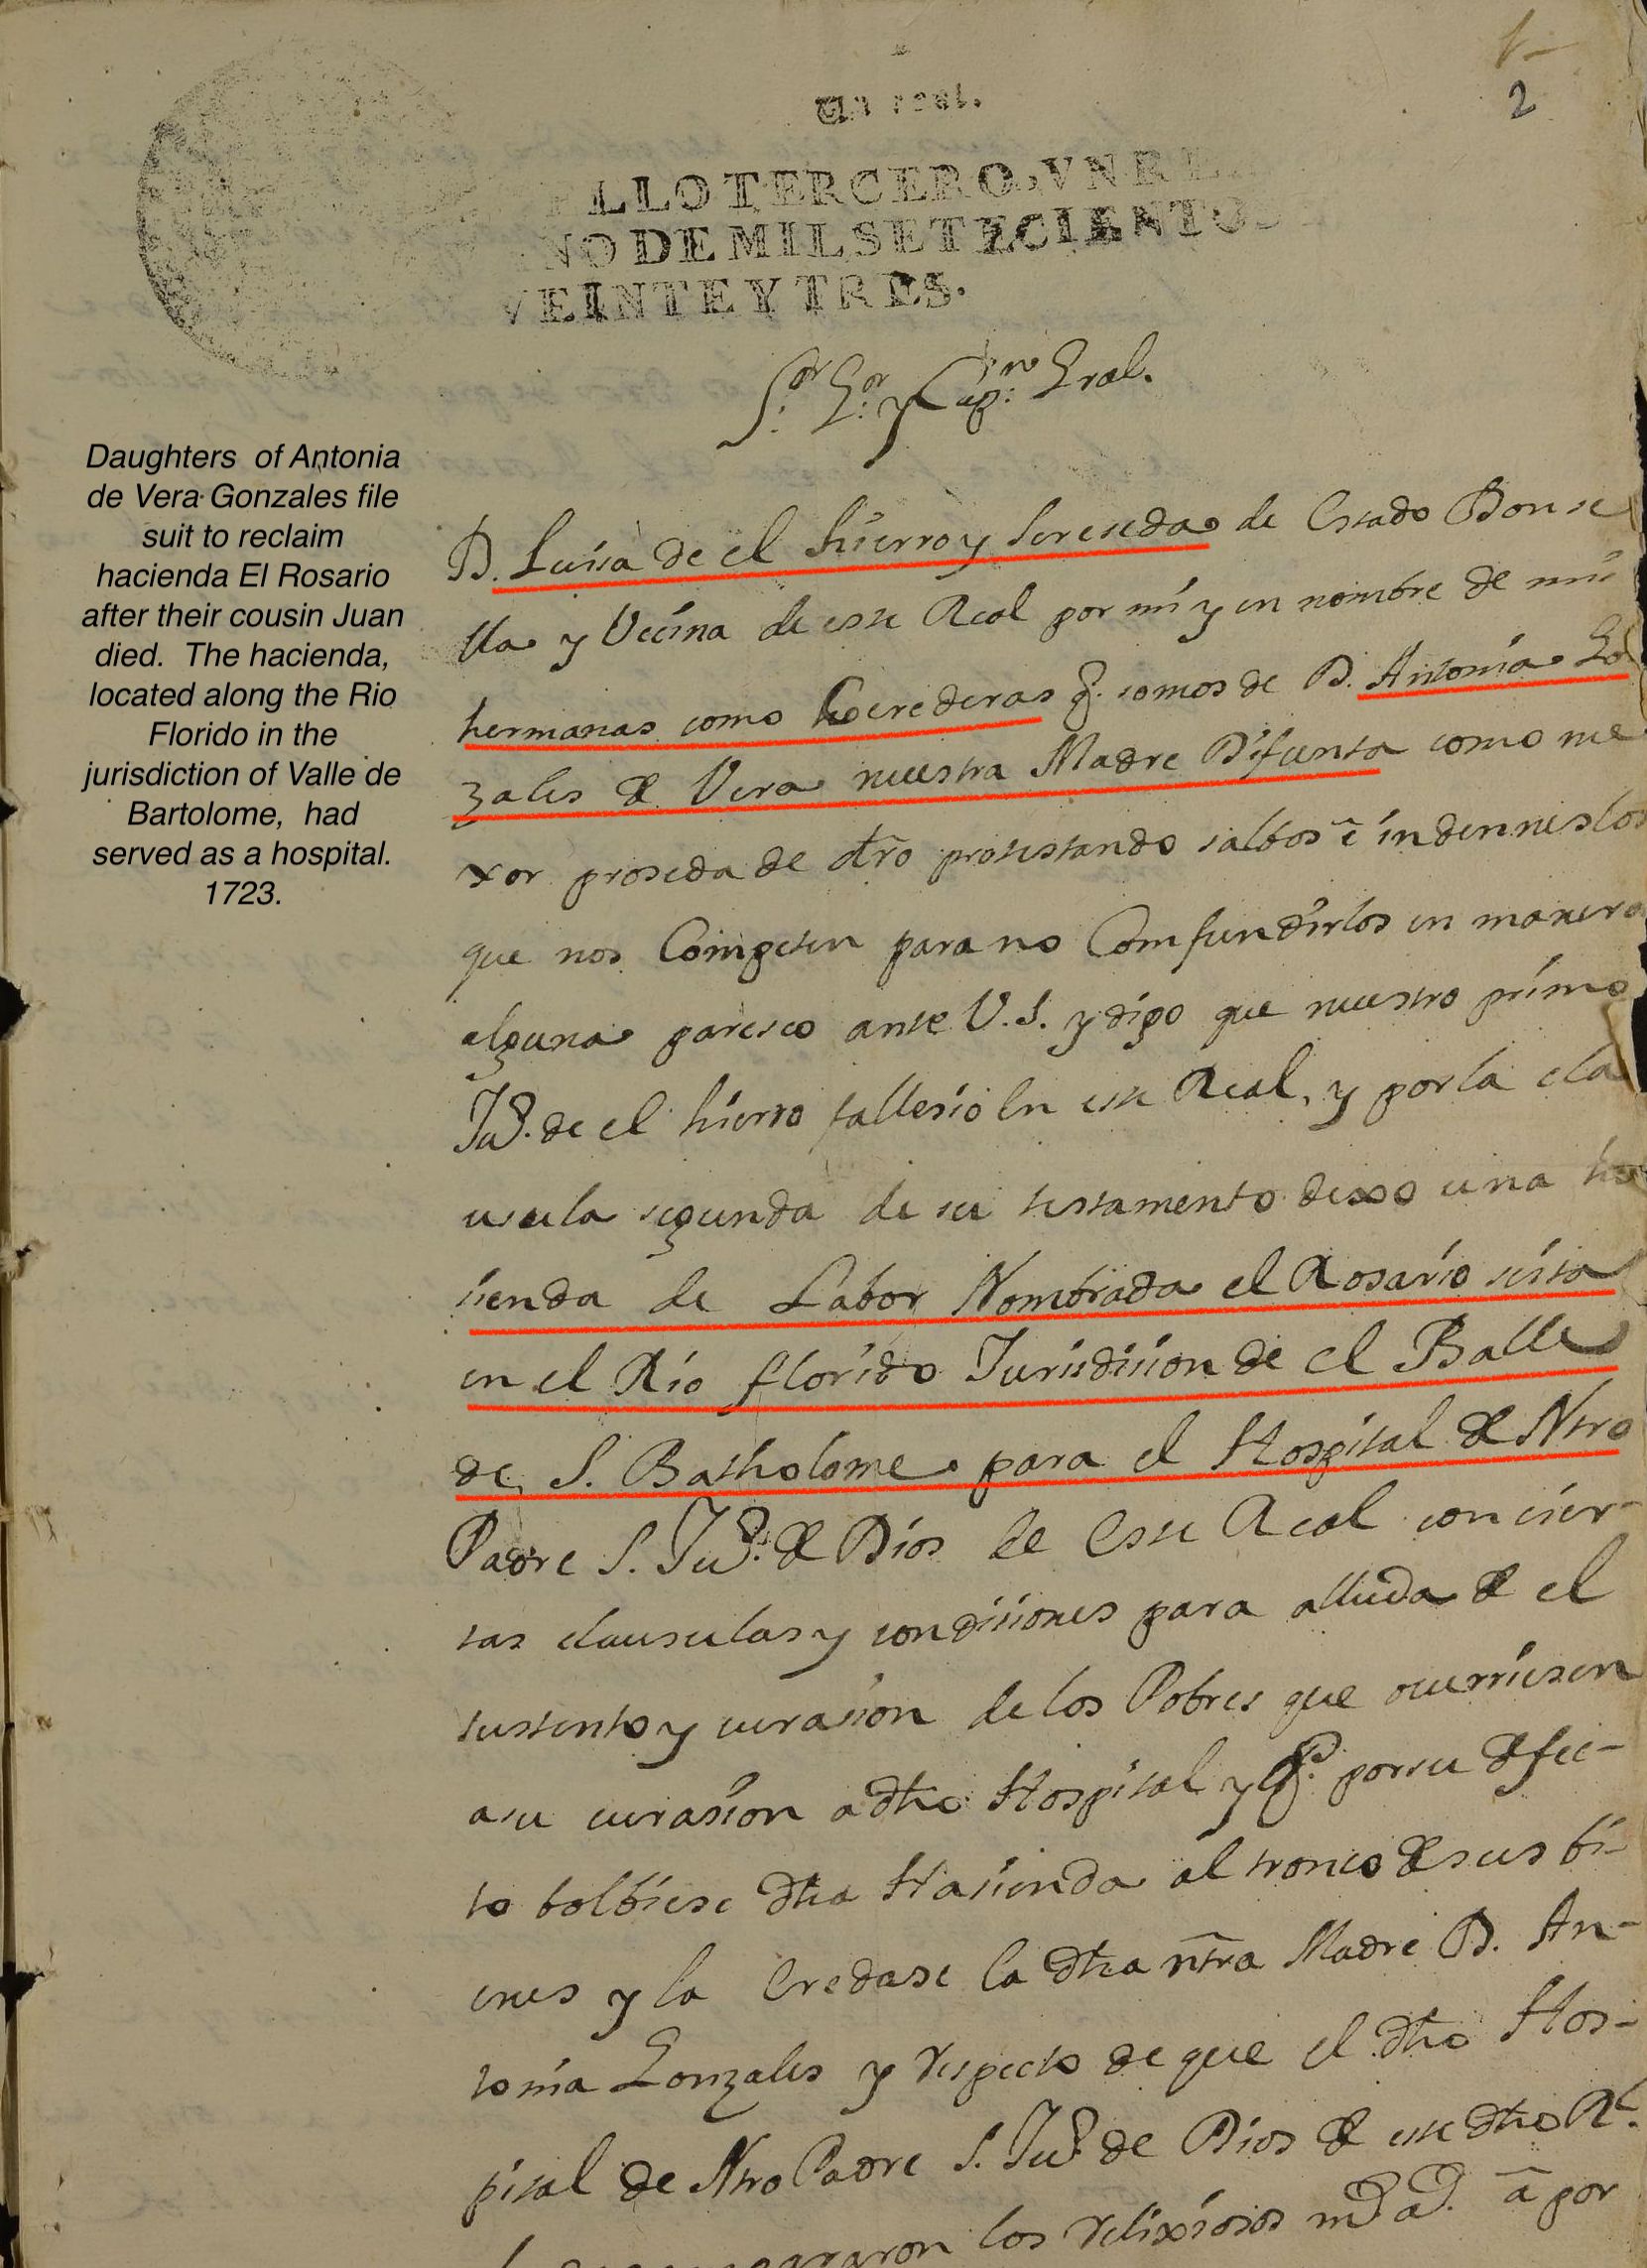 1
2
Un real.
ELLO TERCERO, VN RE
NO DE MIL SETECIENTOS
VEINTE Y TRES.
S.or G.or y Cap.n Gral.
Daughters of Antonia
de Vera Gonzales file
suit to reclaim
hacienda El Rosario
after their cousin Juan
died. The hacienda,
located along the Rio
Florido in the
jurisdiction of Valle de
Bartolome, had
served as a hospital.
1723.
D. Luisa de el hierro y Sereseda de Estado Donse
lla y Vecina de este Real por mi y en nombre de mis
hermanas como herederas q. somos de D. Antonia Go
zales de Vera nuestra Madre Difunta como me
xor proseda de dro protestando salbos e indemnes los
que nos Competen para no Comfundirlos en manera
alguna paresco ante V.S. y digo que nuestro primo
Ju.º de el hierro fallesio En este Real, y por la cla
usula segunda de su testamento dexo una ha
sienda de Labor Nombrada el Rosario sista
en el Rio florido Jurisdision de el Balle
de S. Batholome para el Hospital de Ntro
Padre S. Ju.º de Dios de Este Real con cier-
tas clausulas y condisiones para alluda de el
sustento y curasion de los Pobres que ocurriesen
a su curasion a dho Hospital y q. por su defec-
to bolbiese dha Hasienda al tronco de sus bi-
enes y la Eredase la dha ntra Madre D. An-
tonia Gonzales y respecto de que el dho Hos-
pital de Ntro Padre S. Ju.º de Dios de este dho R.l
los relixiosos a por